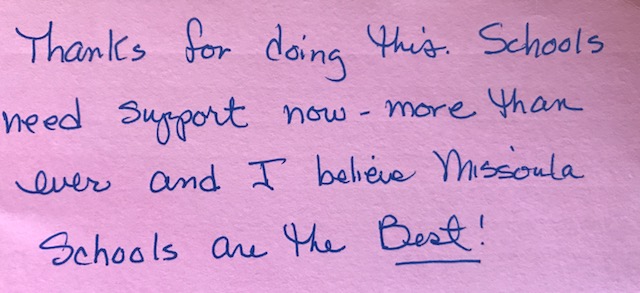 Thanks for doing this. Schools
need support now - more than
ever and I believe Missoula
Schools are the Best!